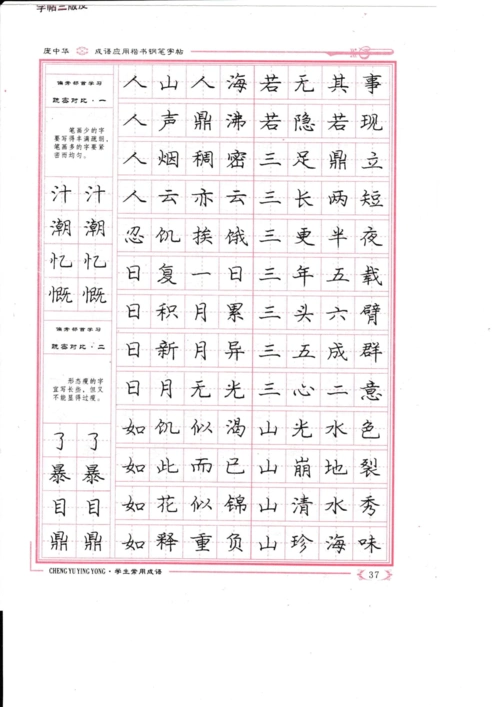 字帖三版及
庞中华 成语应用楷书钢笔字帖
偏旁部首学习
疏密对比·一
笔画少的字
要写得丰满疏朗，
笔画多的字要紧
密而均匀。
汁 汁
潮 潮
忆 忆
慨 慨
偏旁部首学习
疏密对比·二
形态瘦的字
宜写长些，但又
不能显得过瘦。
了 了
暴 暴
目 目
鼎 鼎
人山人海若无其事
人声鼎沸若隐若现
人烟稠密三足鼎立
人云亦云三长两短
忍饥挨饿三更半夜
日复一日三年五载
日积月累三头六臂
日新月异三五成群
日月无光三心二意
如饥似渴山光水色
如此而已山崩地裂
如花似锦山清水秀
如释重负山珍海味
CHENG YU YING YONG·学生常用成语
37